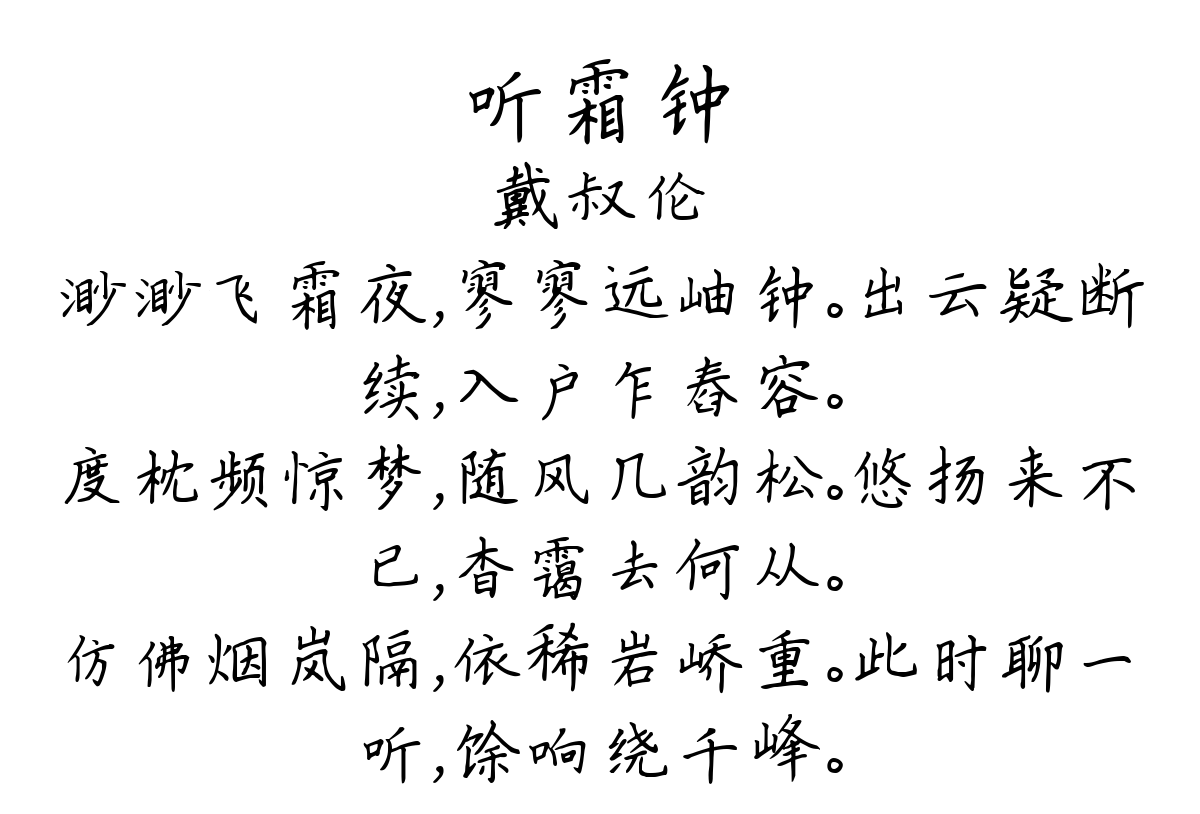 听霜钟
戴叔伦
渺渺飞霜夜,寥寥远岫钟。出云疑断
续,入户乍舂容。
度枕频惊梦,随风几韵松。悠扬来不
已,杳霭去何从。
仿佛烟岚隔,依稀岩峤重。此时聊一
听,馀响绕千峰。